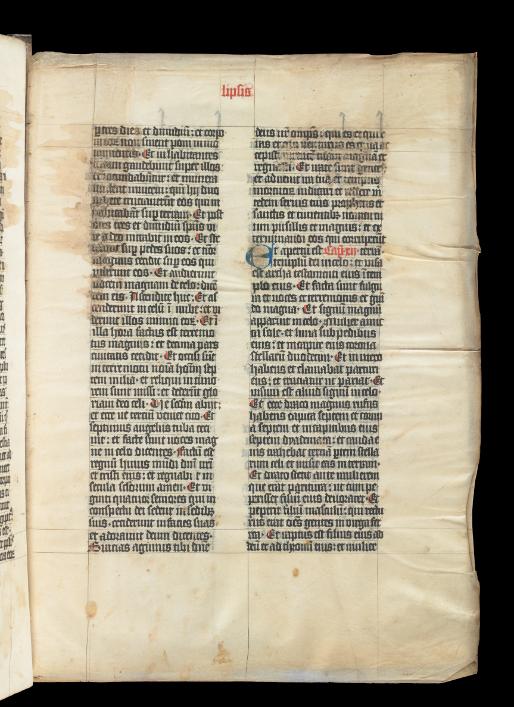 lipsis
p tres dies et dimidiū : et corpo
ra eoꝝ non sinent poni in mo
numentis · Et inhabitantes
terram gaudebunt super illos
et iocundabūtur : et munera
mittent inuicem : qm̄ hij duo
prophete cruciauerūt eos qui in
habitabāt sup terram · Et post
dies tres et dimidium spūs vi
te a deo intrabit in eos · Et ste
terunt sup pedes suos : et ti
mor magnus cecidit sup eos qui
viderunt eos · Et audierunt
vocem magnam de celo : dicē
tem eis · Ascendite huc : Et as
cenderunt in celū ī nube : et vi
derunt illos inimici eoꝝ · Et ī
illa hora factus est terre mo
tus magnus : et decima pars
ciuitatis cecidit · Et occisi sūt
in terre motu noīa hoīm sep
tem milia · et reliqui in timo
rem sunt missi : et dederūt glo
riam deo celi · Ve secūm abijt :
et ecce ve terciū veniet cito · Et
septimus angelus tuba ceci
nit : et facte sunt voces mag
ne in celo dicentes · Factū est
regnū huius mūdi dnī nrī
et cristi eius : et regnabit in
secula seculorum amen · Et vi
ginti quatuor seniores qui in
conspectu dei sedent in sedibꝫ
suis · ceciderunt in facies suas
et adorauerūt deum dicentes ·
Gratias agimus tibi dn̄e
deus nr̄ omp̄s : qui es et qui e
ras
accepisti virtutem tuam magnā et
regnasti · Et irate sunt gentes
et aduenit ira tua et tempus
mortuoꝝ iudicari et reddere m̄
cedem seruis tuis prophetis et
sanctis et timentibꝫ nomen tu
um pusillis et magnis : et ex
terminandi eos qui corruperūt
Et apertū est Caplm xij · terrā
templū dei in celo : et visa
est archa testamenti eius ī tem
plo eius · Et facta sunt fulgu
ra et voces et terremotus et grā
do magna · Et signū magnū
apparuit in celo · Mulier amic
ta sole · et luna sub pedibus
eius : et in capite eius corona
stellarū duodecim · Et in vtero
habens et clamabat parturi
ens : et cruciatur vt pariat · Et
visum est aliud signū in celo ·
Et ecce draco magnus rufus
habens capita septem et cornu
a septem et in capitibus eius
septem dyademata : et cauda e
ius trahebat terciā ptem stella
rum celi et misit eas in terram ·
Et draco stetit ante mulierem
que erat paritura : vt cum pe
perisset filium eius deuoraret · Et
peperit filiū masculū : qui rectu
rus erat oēs gentes in virga fer
rea · Et raptus est filius eius ad
deū et ad thronū eius : et mulier